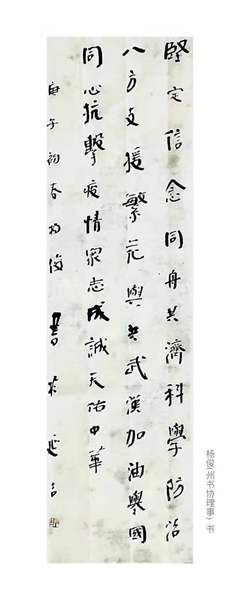 堅定信念同舟共濟科學防治
八方支援元與共武漢加油舉國
同心抗擊疫情眾志成誠天佑中華
庚子初春楊俊書於延吉
杨俊(州书协理事）书